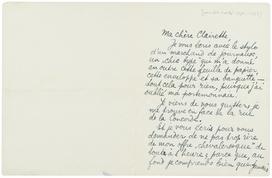 Ma chère Clairette
Je vous écris avec le stylo
d'un marchand de journaux,
un chic type qui m'a donné
en outre cette feuille de papier,
cette enveloppe et sa banquette —
tout cela pour rien, puisque j'ai
oublié ma portemonnaie.
Je viens de vous quitter, je
me trouve en face de la rue
de la Concorde.
Et je vous écris pour vous
demander de ne pas trop rire
de mon offre "chevaleresque" de
tout à l'heure; parce que, au
fond je comprends bien que